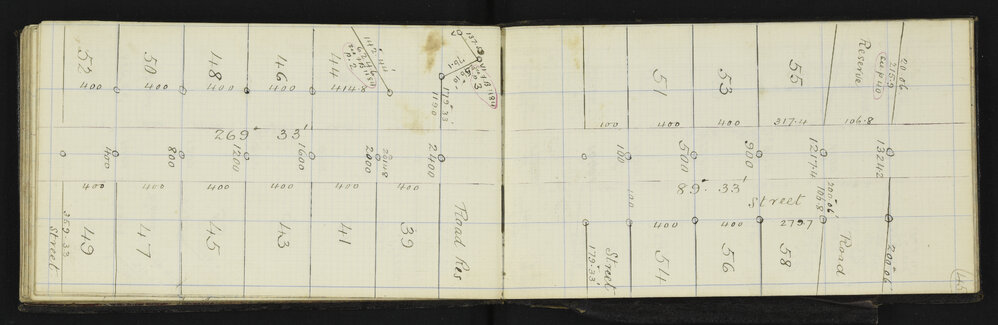 52
50
48
46
44
142° 44'
400
400
400
400
414.8
137.59
3
119° 33'
1190
269° 33'
400
800
1200
1600
2000
2014.8
2400
400
400
400
400
400
400
359.33
Street
49
47
45
43
41
39
Road Res
51
53
55
Reserve
20.06
215.9
100
400
400
317.4
106.8
100
500
900
1217.4
1324.2
89° 33'
Street
100
200.06
106.8
400
400
279.7
Street
179° 33'
54
56
58
Road
200.06
45